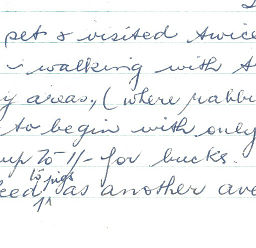 pet & visited twice
walking with
y areas, (where rabbi
to begin with only
up to 1/- for bucks.
to pigs
eed as another ave